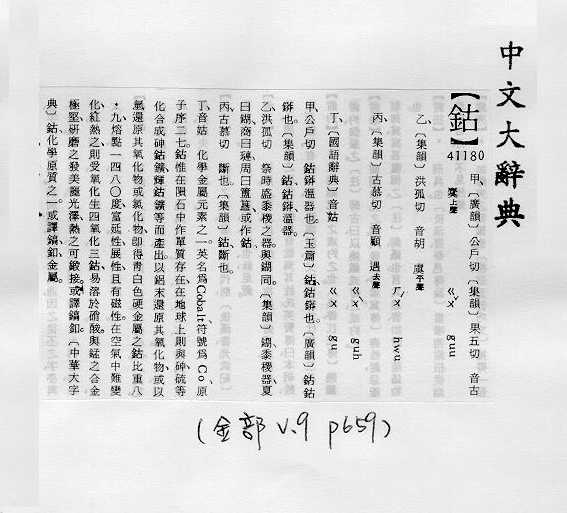 中文大辭典
【鈷】41180 甲、〔廣韻〕公戶切〔集韻〕果五切 音古
麌上聲 ㄍㄨˇ guu
乙、〔集韻〕洪孤切 音胡 虞平聲
ㄏㄨˊ hwu
丙、〔集韻〕古慕切 音顧 遇去聲
ㄍㄨˋ guh
丁、〔國語辭典〕音姑 ㄍㄨ gu
甲、公戶切 鈷鉧溫器也。〔玉篇〕鈷、鈷鉧也。〔廣韻〕鈷、鈷
鉧也。〔集韻〕鈷、鈷鉧溫器。
乙、洪孤切 祭時盛黍稷之器。與鍸同。〔集韻〕鍸、黍稷器、夏
曰鍸、商曰璉、周曰簠簋、或作鈷。
丙、古慕切 斷也。〔集韻〕鈷、斷也。
丁、音姑 化學金屬元素之一。英名爲Cobalt、符號爲Co、原
子序二七。鈷惟在隕石中作單質存在、在地球上則與砷、硫等
化合成砷鈷鑛、輝鈷鑛等而產出、以鋁末還原其氧化物、或以
氫還原其氧化物或氯化物、卽得靑白色硬金屬之鈷、比重八
・九、熔點一四八〇度、富延性、展性、且有磁性、在空氣中難變
化、紅熱之、則受氧化、生四氧化三鈷、易溶於硝酸、與錳之合金
極堅硏磨之、發美麗光澤、熱之可鍛接、或譯鎬、鈤。〔中華大字
典〕鈷、化學原質之一。或譯鎬、鈤、金屬。
(金部 v.9 p659)